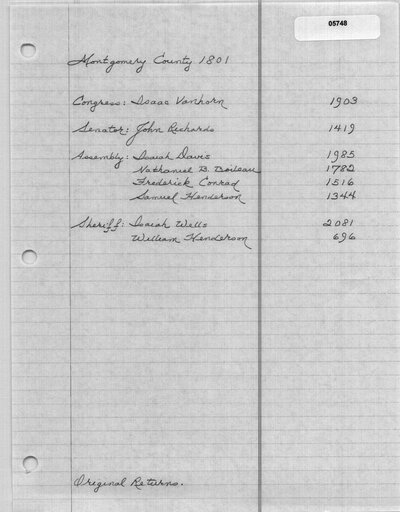 05748
Montgomery County 1801
Congress: Isaac Vanhorn 1903
Senator: John Richards 1419
Assembly: Isaiah Davis 1985
Nathaniel B. Boileau 1782
Frederick Conrad 1516
Samuel Henderson 1344
Sheriff: Isaiah Wells 2081
William Henderson 696
Original Returns.